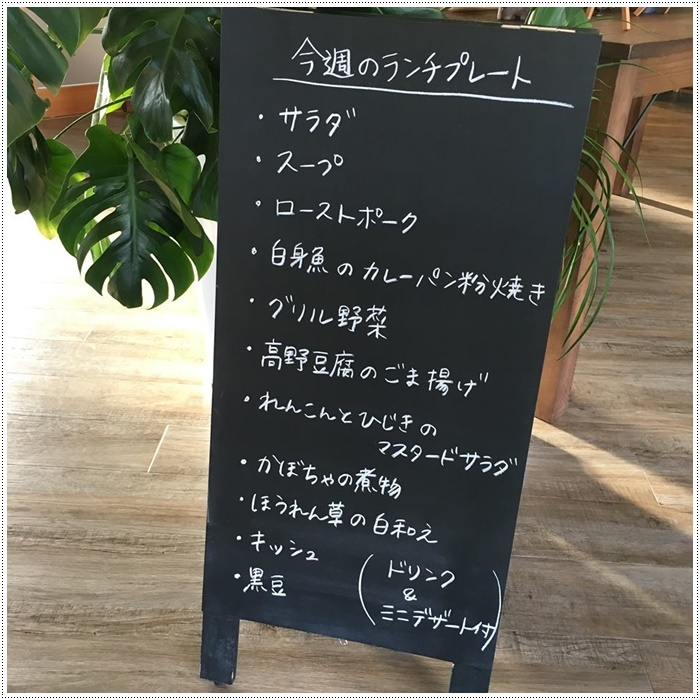 今週のランチプレート
・サラダ
・スープ
・ローストポーク
・白身魚のカレーパン粉焼き
・グリル野菜
・高野豆腐のごま揚げ
・れんこんとひじきの
マスタードサラダ
・かぼちゃの煮物
・ほうれん草の白和え
・キッシュ
・黒豆
(ドリンク
&
ミニデザート付)